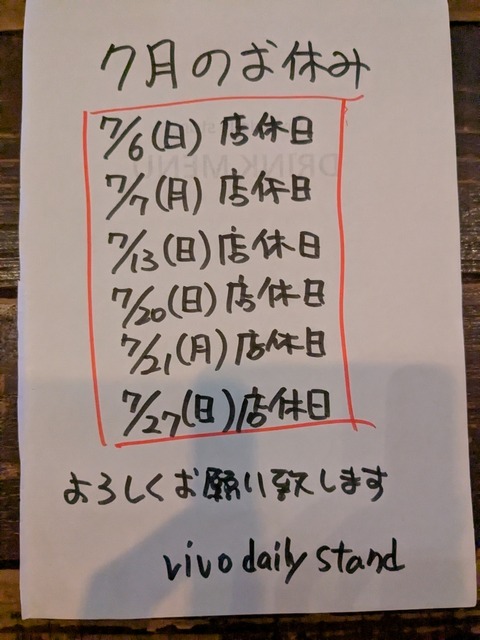 7月のお休み
7/6(日)店休日
7/7(月)店休日
7/13(日)店休日
7/20(日)店休日
7/21(月)店休日
7/27(日)店休日
よろしくお願い致します
vivo daily stand
DRINK MENU